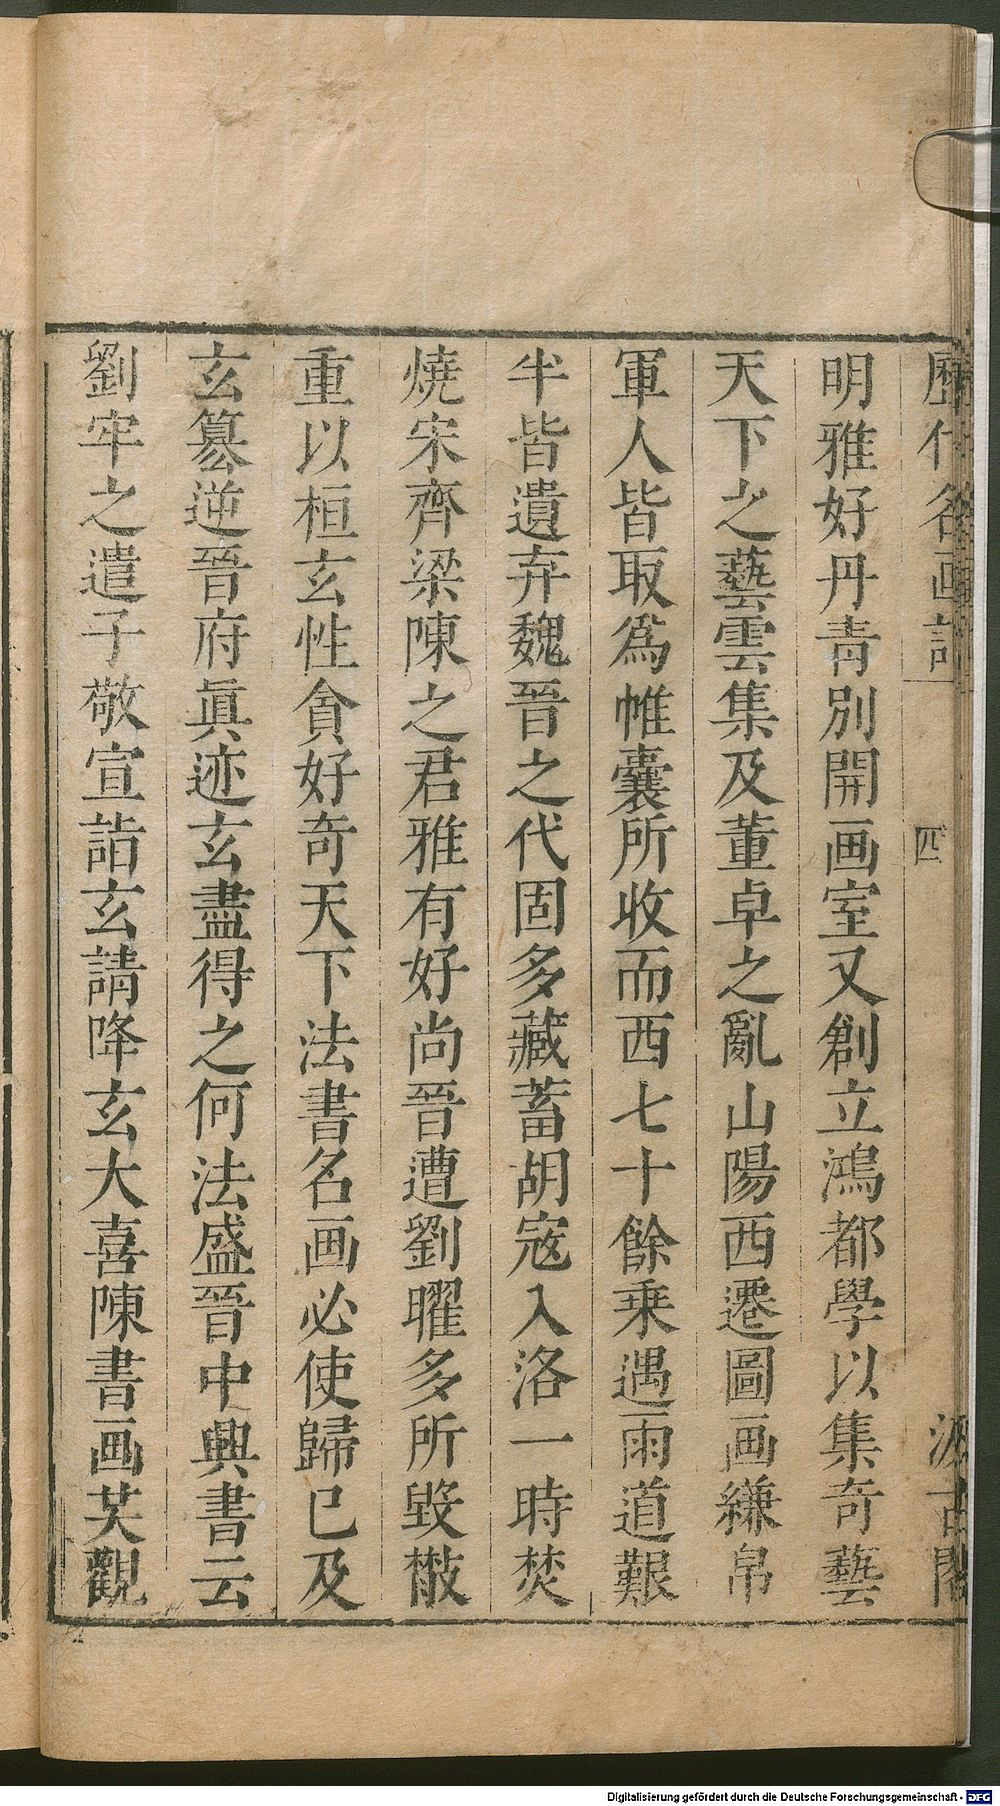 歷代名画記
四
汲古閣
明雅好丹青別開画室又創立鴻都學以集奇藝
天下之藝雲集及董卓之亂山陽西遷圖画縑帛
軍人皆取爲帷囊所收而西七十餘乗遇雨道艱
半皆遺弃魏晉之代固多藏蓄胡寇入洛一時焚
燒宋齊梁陳之君雅有好尚晉遭劉曜多所毀散
重以桓玄性貪好奇天下法書名画必使歸己及
玄篡逆晉府眞迹玄盡得之何法盛晉中興書云
劉牢之遣子敬宣詣玄請降玄大喜陳書画共觀
Digitalisierung gefördert durch die Deutsche Forschungsgemeinschaft - DFG